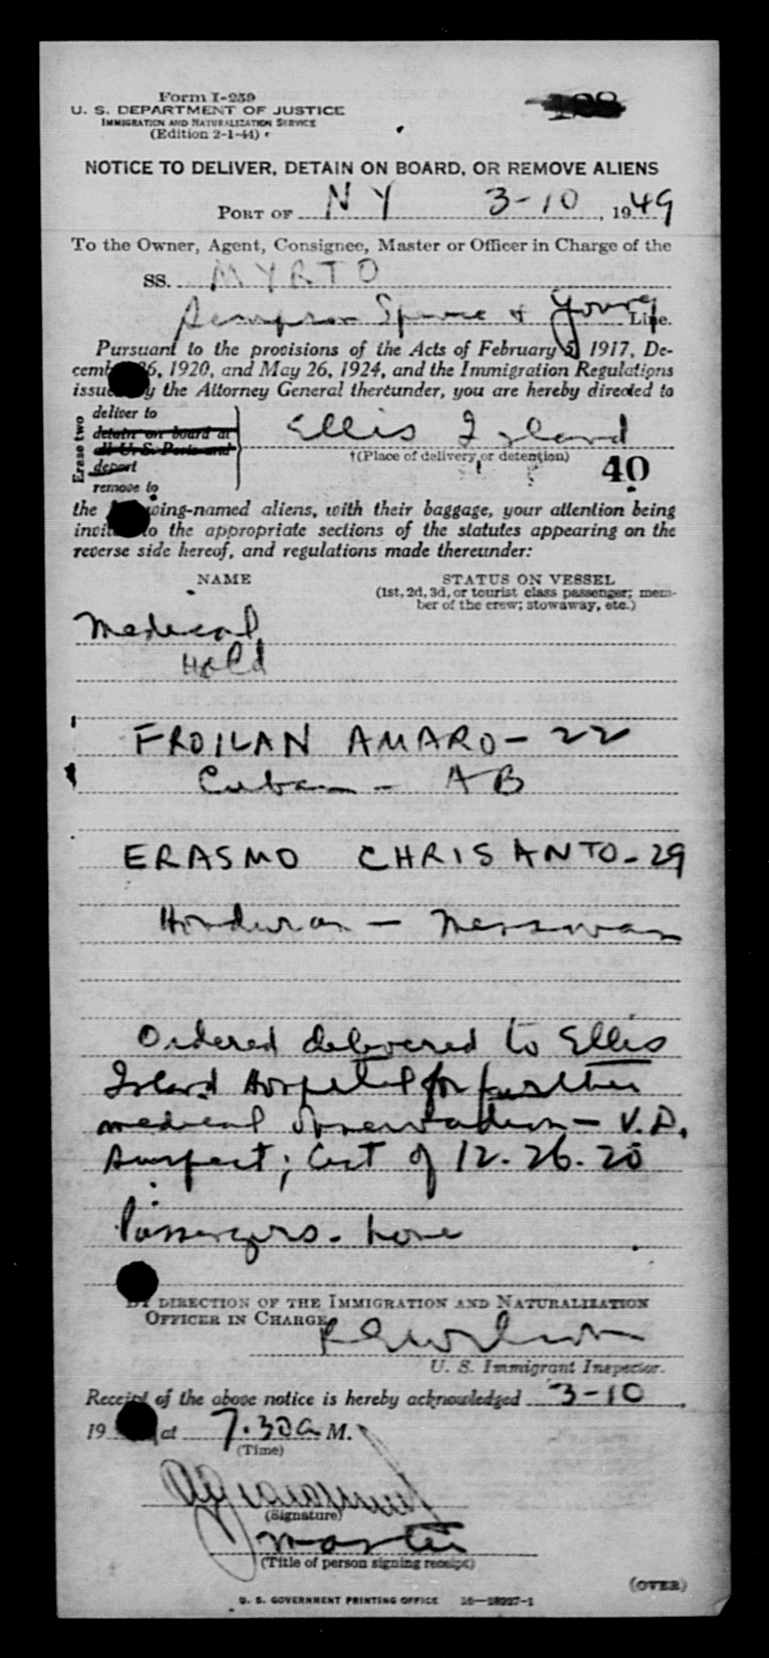 Form I-259
U. S. DEPARTMENT OF JUSTICE
IMMIGRATION AND NATURALIZATION SERVICE
(Edition 2-1-44)
NOTICE TO DELIVER, DETAIN ON BOARD, OR REMOVE ALIENS
PORT OF NY 3-10, 1949
To the Owner, Agent, Consignee, Master or Officer in Charge of the
SS. MYRTO
Spence & Young Line.
Pursuant to the provisions of the Acts of February 5, 1917, De-
cember 26, 1920, and May 26, 1924, and the Immigration Regulations
issued by the Attorney General thereunder, you are hereby directed to
Erase two
deliver to
detain on board at
all U. S. Ports and
deport
remove to
Ellis Island
†(Place of delivery or detention)
40
the following-named aliens, with their baggage, your attention being
invited to the appropriate sections of the statutes appearing on the
reverse side hereof, and regulations made thereunder:
NAME STATUS ON VESSEL
(1st, 2d, 3d, or tourist class passenger; mem-
ber of the crew; stowaway, etc.)
Medical
Hold
FROILAN AMARO - 22
Cuban - AB
ERASMO CHRISANTO - 29
Honduran - Messman
Ordered delivered to Ellis
Island Hospital for further
medical observation - V.D.
Suspect; Act of 12.26.20
Passengers - none
BY DIRECTION OF THE IMMIGRATION AND NATURALIZATION
OFFICER IN CHARGE
R G Wilson
U. S. Immigrant Inspector.
Receipt of the above notice is hereby acknowledged 3-10,
19 at 7.30 a M.
(Time)
(Signature)
Master
(Title of person signing receipt)
(OVER)
U. S. GOVERNMENT PRINTING OFFICE 16—18227-1